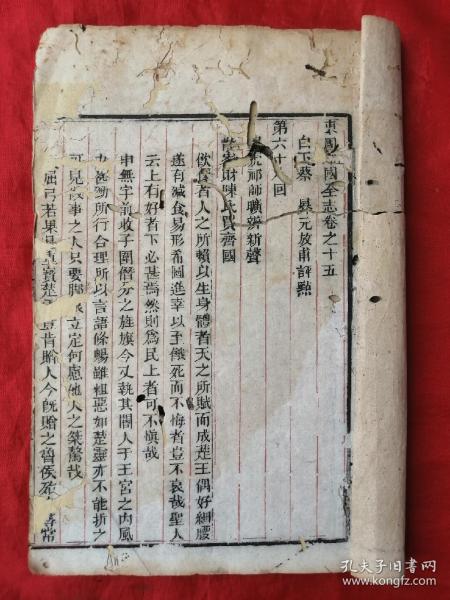 東周列國全志卷之十五
白下蔡 元放甫評點
第六十 回
祁師曠辨新聲
散家財陳氏買齊國
飲食者人之所賴以生身體者天之所賦而成楚王偶好細腰
遂有減食易形希圖進幸以至餓死而不悔者豈不哀哉聖人
云上有好者下必甚焉然則為民上者可不慎哉
申無宇前收子圍僭分之旌旗今又執其閽人于王宮之內風
力 勁所行合理所以言語條暢雖粗惡如楚靈亦不能折之
可見做事之人只要脚 立定何慮他人之桀驁哉
屈弓若果是重寶楚 豈肯賜人今既賜之魯侯
孔夫子旧书网
www.kongfz.com